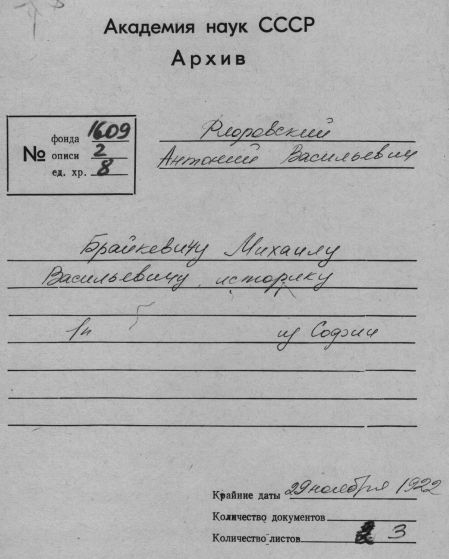 Академия наук СССР
Архив
№
фонда 1609
описи 2
ед. хр. 8
Флоровский
Антоний Васильевич
Брайкевичу Михаилу
Васильевичу, историку
1п из Софии
Крайние даты 29 ноября 1922
Количество документов
Количество листов 3